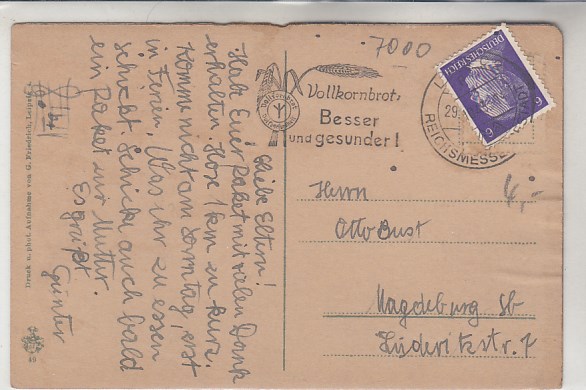 7000
Vollkornbrot,
Besser
und gesunder!
DEUTSCHES REICH
6
6
29.
REICHSMESSE
Herrn
Otto Bust
Magdeburg Sb
Lüderitzstr. 7
6,-
Liebe Eltern!
Habt Euer Paket mit vielen Dank
erhalten. Hose 1 km zu kurz.
Komme nicht am Sonntag, erst
in Ferien. Was ihr zu essen
schickt. Schickt auch bald
ein Paket zur Mutter.
Es grüßt
Günter
Druck u. phot. Aufnahme von G. Friedrich, Leipzig
49